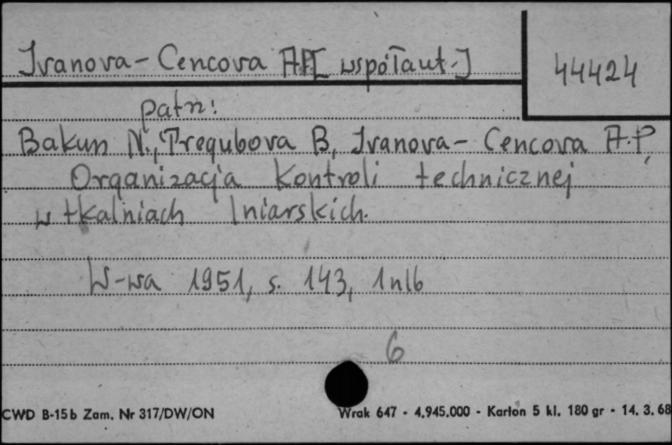 Ivanova-Cencova A.P. [współaut.]
44424
patrz:
Bakun N., Tregubova B., Ivanova-Cencova A.P.
Organizacja kontroli technicznej
w tkalniach lniarskich.
W-wa 1951, s. 143, 1 nlb
6
CWD B-15b Zam. Nr 317/DW/ON
Wrak 647 - 4.945.000 - Karton 5 kl. 180 gr - 14. 3. 68